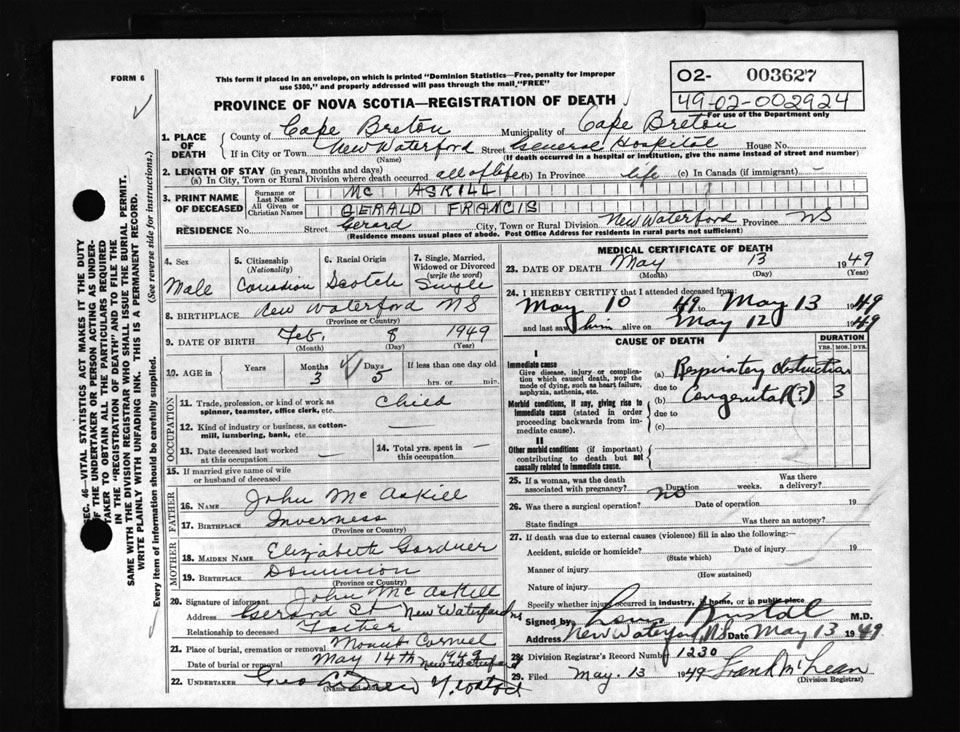 FORM 6
This form if placed in an envelope, on which is printed "Dominion Statistics—Free, penalty for improper
use $300," and properly addressed will pass through the mail "FREE"
O2- 003627
49-02-002924
For use of the Department only
PROVINCE OF NOVA SCOTIA—REGISTRATION OF DEATH
1. PLACE OF DEATH
County of Cape Breton Municipality of Cape Breton
If in City or Town New Waterford Street General Hospital House No.
(Name) (If death occurred in a hospital or institution, give the name instead of street and number)
2. LENGTH OF STAY (in years, months and days)
(a) In City, Town or Rural Division where death occurred all of life (b) In Province life (c) In Canada (if immigrant) -
3. PRINT NAME OF DECEASED
Surname or Last Name MC ASKILL
All Given or Christian Names GERALD FRANCIS
RESIDENCE No. Street Gerard City, Town or Rural Division New Waterford Province NS
(Residence means usual place of abode. Post Office Address for residents in rural parts not sufficient)
4. Sex Male
5. Citizenship (Nationality) Canadian
6. Racial Origin Scotch
7. Single, Married, Widowed or Divorced (write the word) Single
8. BIRTHPLACE New Waterford NS
(Province or Country)
9. DATE OF BIRTH Feb. 8 1949
(Month) (Day) (Year)
10. AGE in Years Months 3 Days 5 If less than one day old
hrs. or min.
OCCUPATION
11. Trade, profession or kind of work as spinner, teamster, office clerk, etc. Child
12. Kind of industry or business, as cotton-mill, lumbering, bank, etc. —
13. Date deceased last worked at this occupation —
14. Total yrs. spent in this occupation —
15. If married give name of wife or husband of deceased
FATHER
16. NAME John McAskill
17. BIRTHPLACE Inverness
(Province or Country)
MOTHER
18. MAIDEN NAME Elizabeth Gardner
19. BIRTHPLACE Dominion
(Province or Country)
20. Signature of informant John McAskill
Address Gerard St New Waterford NS
Relationship to deceased Father
21. Place of burial, cremation or removal Mount Carmel
Date of burial or removal May 14th 1949 New Waterford
22. UNDERTAKER
MEDICAL CERTIFICATE OF DEATH
23. DATE OF DEATH May 13 1949
(Month) (Day) (Year)
24. I HEREBY CERTIFY that I attended deceased from:
May 10 49 to May 13 1949
and last saw him alive on May 12 1949
CAUSE OF DEATH
DURATION
YRS. MOS. DYS.
I
Immediate cause
Give disease, injury or complication which caused death, NOT the mode of dying, such as heart failure, asphyxia, asthenia, etc.
(a) Respiratory obstruction
due to
Morbid conditions, if any, giving rise to immediate cause (stated in order proceeding backwards from immediate cause).
(b) Congenital (?) 3
due to
(c)
II
Other morbid conditions (if important) contributing to death but not causally related to immediate cause.
25. If a woman, was the death associated with pregnancy? Duration weeks. Was there a delivery?
26. Was there a surgical operation? no Date of operation 19
State findings Was there an autopsy?
27. If death was due to external causes (violence) fill in also the following:—
Accident, suicide or homicide? Date of injury 19
(State which)
Manner of injury
(How sustained)
Nature of injury
Specify whether injury occurred in industry, in home, or in public place
Signed by M.D.
Address New Waterford NS Date May 13 1949
28. Division Registrar's Record Number 1230
29. Filed May. 13 1949 Frank McLean
(Division Registrar)
SEC. 46—VITAL STATISTICS ACT MAKES IT THE DUTY
OF THE UNDERTAKER OR PERSON ACTING AS UNDERTAKER TO OBTAIN ALL THE PARTICULARS REQUIRED
IN THE "REGISTRATION OF DEATH" AND TO FILE THE
SAME WITH THE DIVISION REGISTRAR WHO SHALL ISSUE THE BURIAL PERMIT.
WRITE PLAINLY WITH UNFADING INK. THIS IS A PERMANENT RECORD.
Every item of information should be carefully supplied. (See reverse side for instructions.)